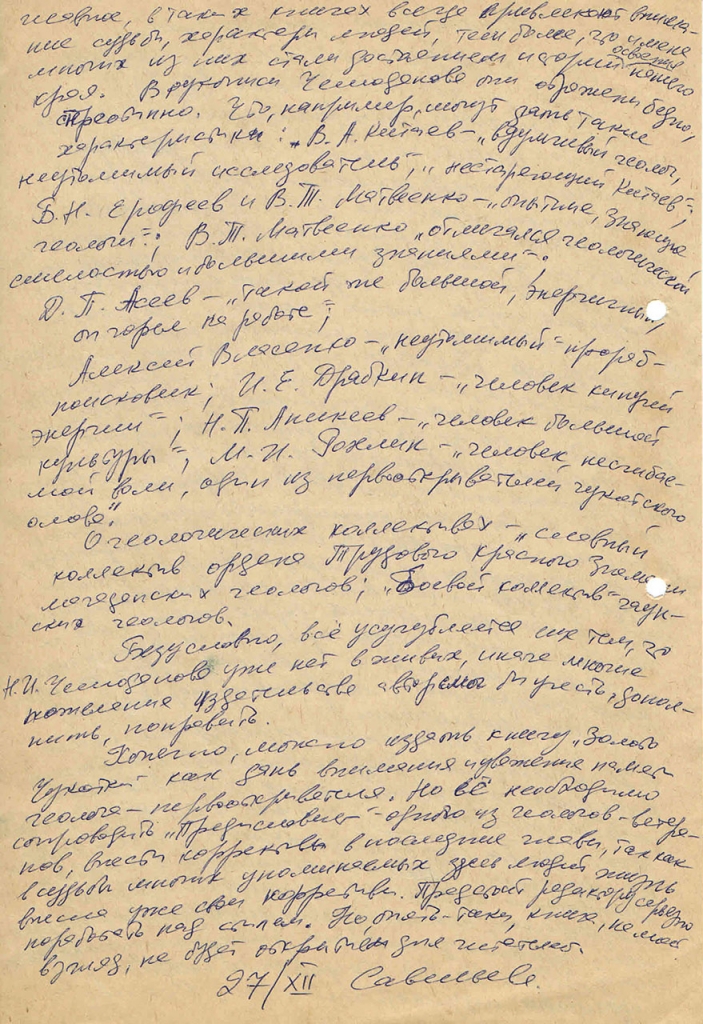 главное, в таких книгах всегда привлекают внима-
ние судьбы, характеры людей, тем более, что имена
многих из них стали достоянием истории освоения нашего
края. В рукописи Чемоданова они отражены бедно,
Что, например, могут дать такие
характеристики: "В. А. Китаев – "вдумчивый геолог,
неутомимый исследователь"; "нестареющий Китаев";
Б. Н. Ерофеев и В. Т. Матвеенко – "опытные, знающие
геологи"; В. Т. Матвеенко "отличался геологической
смелостью и большими знаниями".
Д. П. Асеев – "такой же большой, энергичный,
он горел на работе";
Алексей Власенко – "неутомимый" прораб-
поисковик; И. Е. Драбкин – "человек кипучей
энергии"; Н. П. Аникеев – "человек большой
культуры"; М. И. Рохлин – "человек несгибае-
мой воли, один из первооткрывателей чукотского
олова".
О геологических коллективах – "славный
коллектив ордена Трудового Красного Знамени
магаданских геологов; "Боевой коллектив" чаун-
ских геологов.
Безусловно, всё усугубляется ещё тем, что
Н. И. Чемоданова уже нет в живых, иначе многие
пожелания издательства автор мог бы учесть, допол-
нить, поправить.
Конечно, можно издать книгу "Золото
Чукотки" как дань внимания и уважения памяти
геолога-первооткрывателя. Но её необходимо
сопроводить "Предисловием" одного из геологов-ветера-
нов, внести коррективы в последние главы, так как
в судьбы многих упоминаемых здесь людей жизнь
внесла уже свои коррективы. Предстоит редактору серьезно
поработать над стилем. Но, опять-таки, книга, на мой
взгляд, не будет открытием для читателя.
27/XII Савельева.